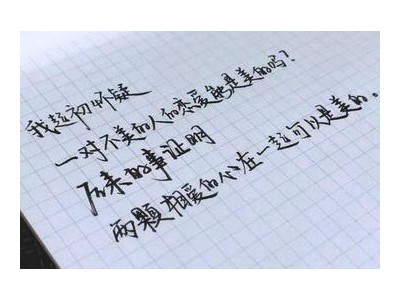 我起初怀疑
一对不美的人的恋爱能是美的吗?
后来的事证明
两颗相爱的心在一起可以是美的。